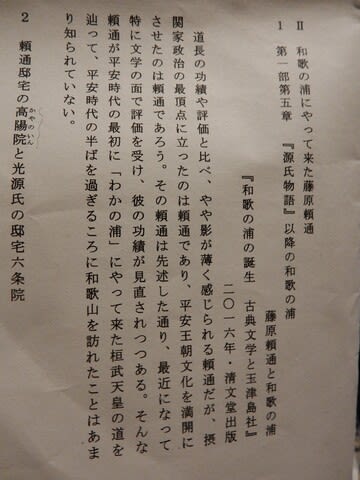 Ⅱ　和歌の浦にやって来た藤原頼通
1　第一部第五章　『源氏物語』以降の和歌の浦
藤原頼通と和歌の浦
『和歌の浦の誕生　古典文学と玉津島社』
二〇一六年・清文堂出版
道長の功績や評価と比べ、やや影が薄く感じられる頼通だが、摂
関家政治の最頂点に立ったのは頼通であり、平安王朝文化を満開に
させたのは頼通であろう。その頼通は先述した通り、最近になって
特に文学の面で評価を受け、彼の功績が見直されつつある。そんな
頼通が平安時代の最初に「わかの浦」にやって来た桓武天皇の道を
辿って、平安時代の半ばを過ぎるころに和歌山を訪れたことはあま
り知られていない。
2　頼通邸宅の高陽院と光源氏の邸宅六条院
かやのいん